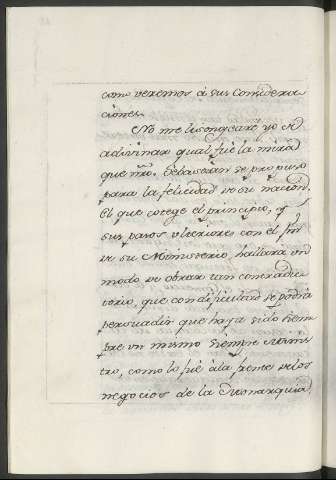 como veremos á sus considera
ciones.
No me lisongeare yo de
adivinar qual fue la mira
que nro. Sebastian se propuso
para la felicidad de su nacion.
El que cotege el principio, y
sus pasos ulteriores con el fin
de su Ministerio, hallara un
modo de obrar tan contradic
torio, que con dificultad se podrá
persuadir que haya sido siem
pre un mismo hombre
tro, como lo fué á la frente de los
negocios de la Monarquia